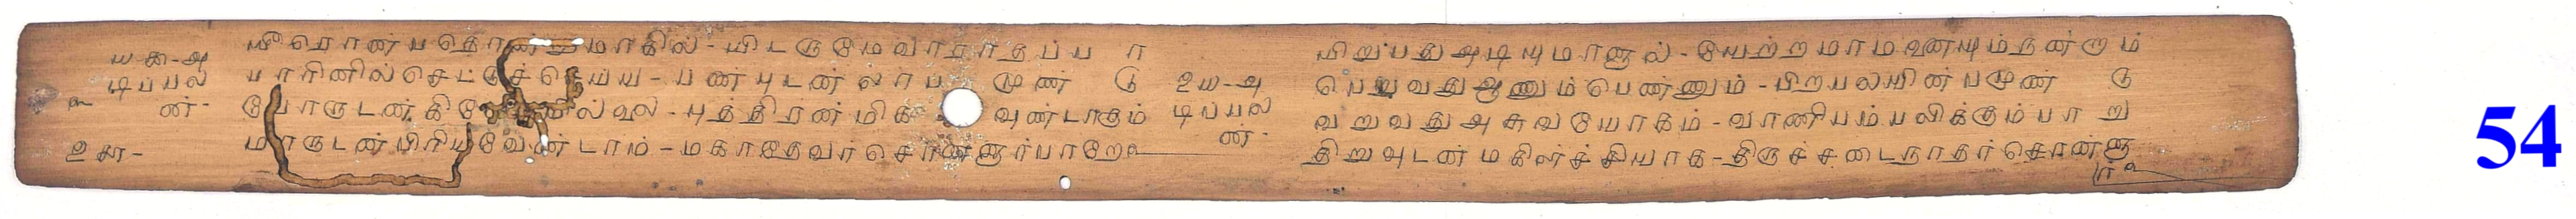 யக-அடிப்பலன்-
உசு-
யீரொண்பதொண்றுமாகில்-யிடருமேவாராதப்பா
பாரினில்செட்டுச்செய்ய-பண்புடன்லாபமுண்டு
போருடன்கி ல்வல-புத்திரன்மிகவுண்டாகும்
மாருடன்பிரியவேண்டாம்-மகாதேவர்சொன்னார்பாறே
உய-அடிப்பலன்-
யிறுபதுஅடியுமானால்-யேற்றமாமனையும்நன்றும்
பெறுவதுஆணும்பெண்ணும்-பிறபலயின்பமுண்டு
வறுவதுஅசுவயோகம்-வாணியம்பலிக்கும்பாறு
திறுவுடன்மகிள்ச்சியாக-திருச்சடைநாதர்சொன்னார்
54